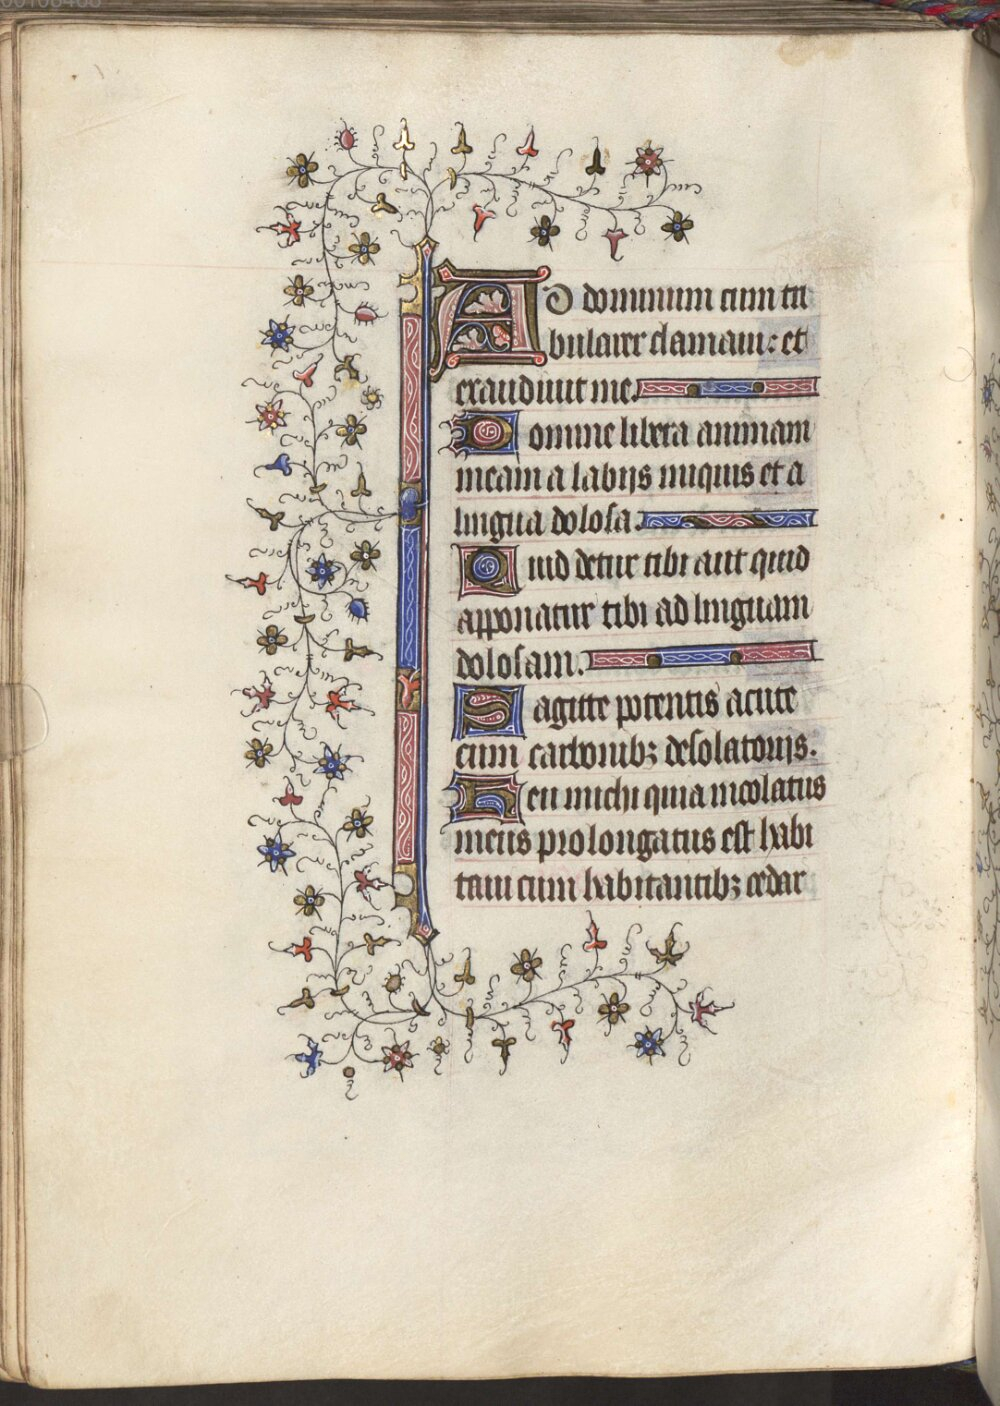 Ad dominum cum tri
bularer clamaui: et
exaudiuit me.
Domine libera animam
meam a labijs iniquis et a
lingua dolosa.
Quid detur tibi aut quid
apponatur tibi ad linguam
dolosam.
Sagitte potentis acute
cum carbonibꝫ desolatorijs.
Heu michi quia incolatus
meus prolongatus est habi
taui cum habitantibꝫ cedar